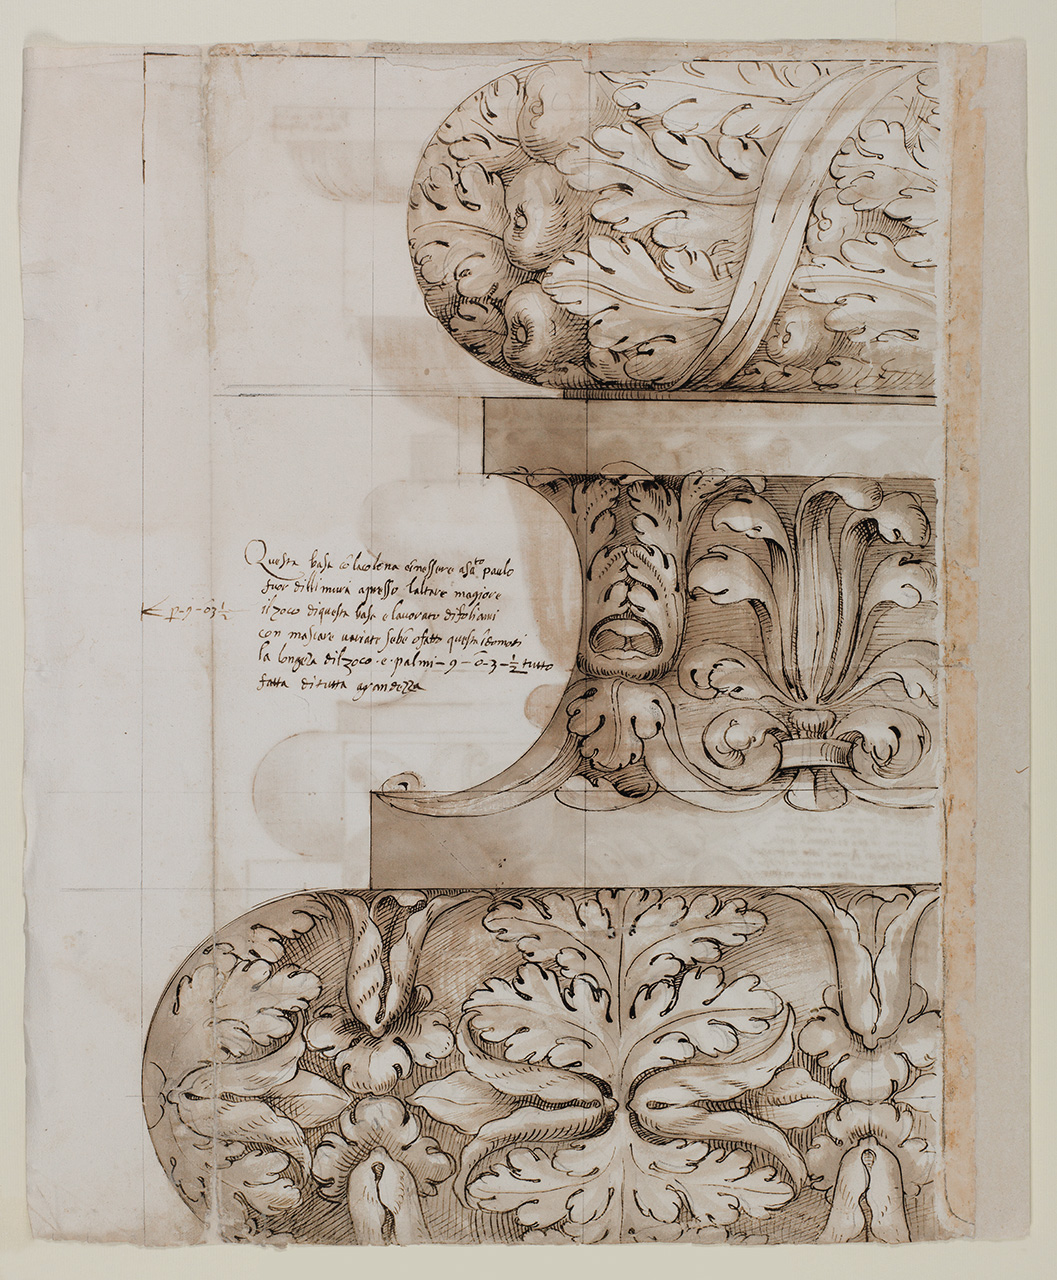 Questa basa cō la colona ē nessere a S.to paulo
fuor di li mura apresso laltare magiore
il zoco di questa basa e lavorato di foliami
con mascare variate sebē o fatto questa
la longeza dil zoco · e · palmi – 9 – ō – 3 – ½ tutto
fatta di tutta grandezza
p – 9 – o3 ½